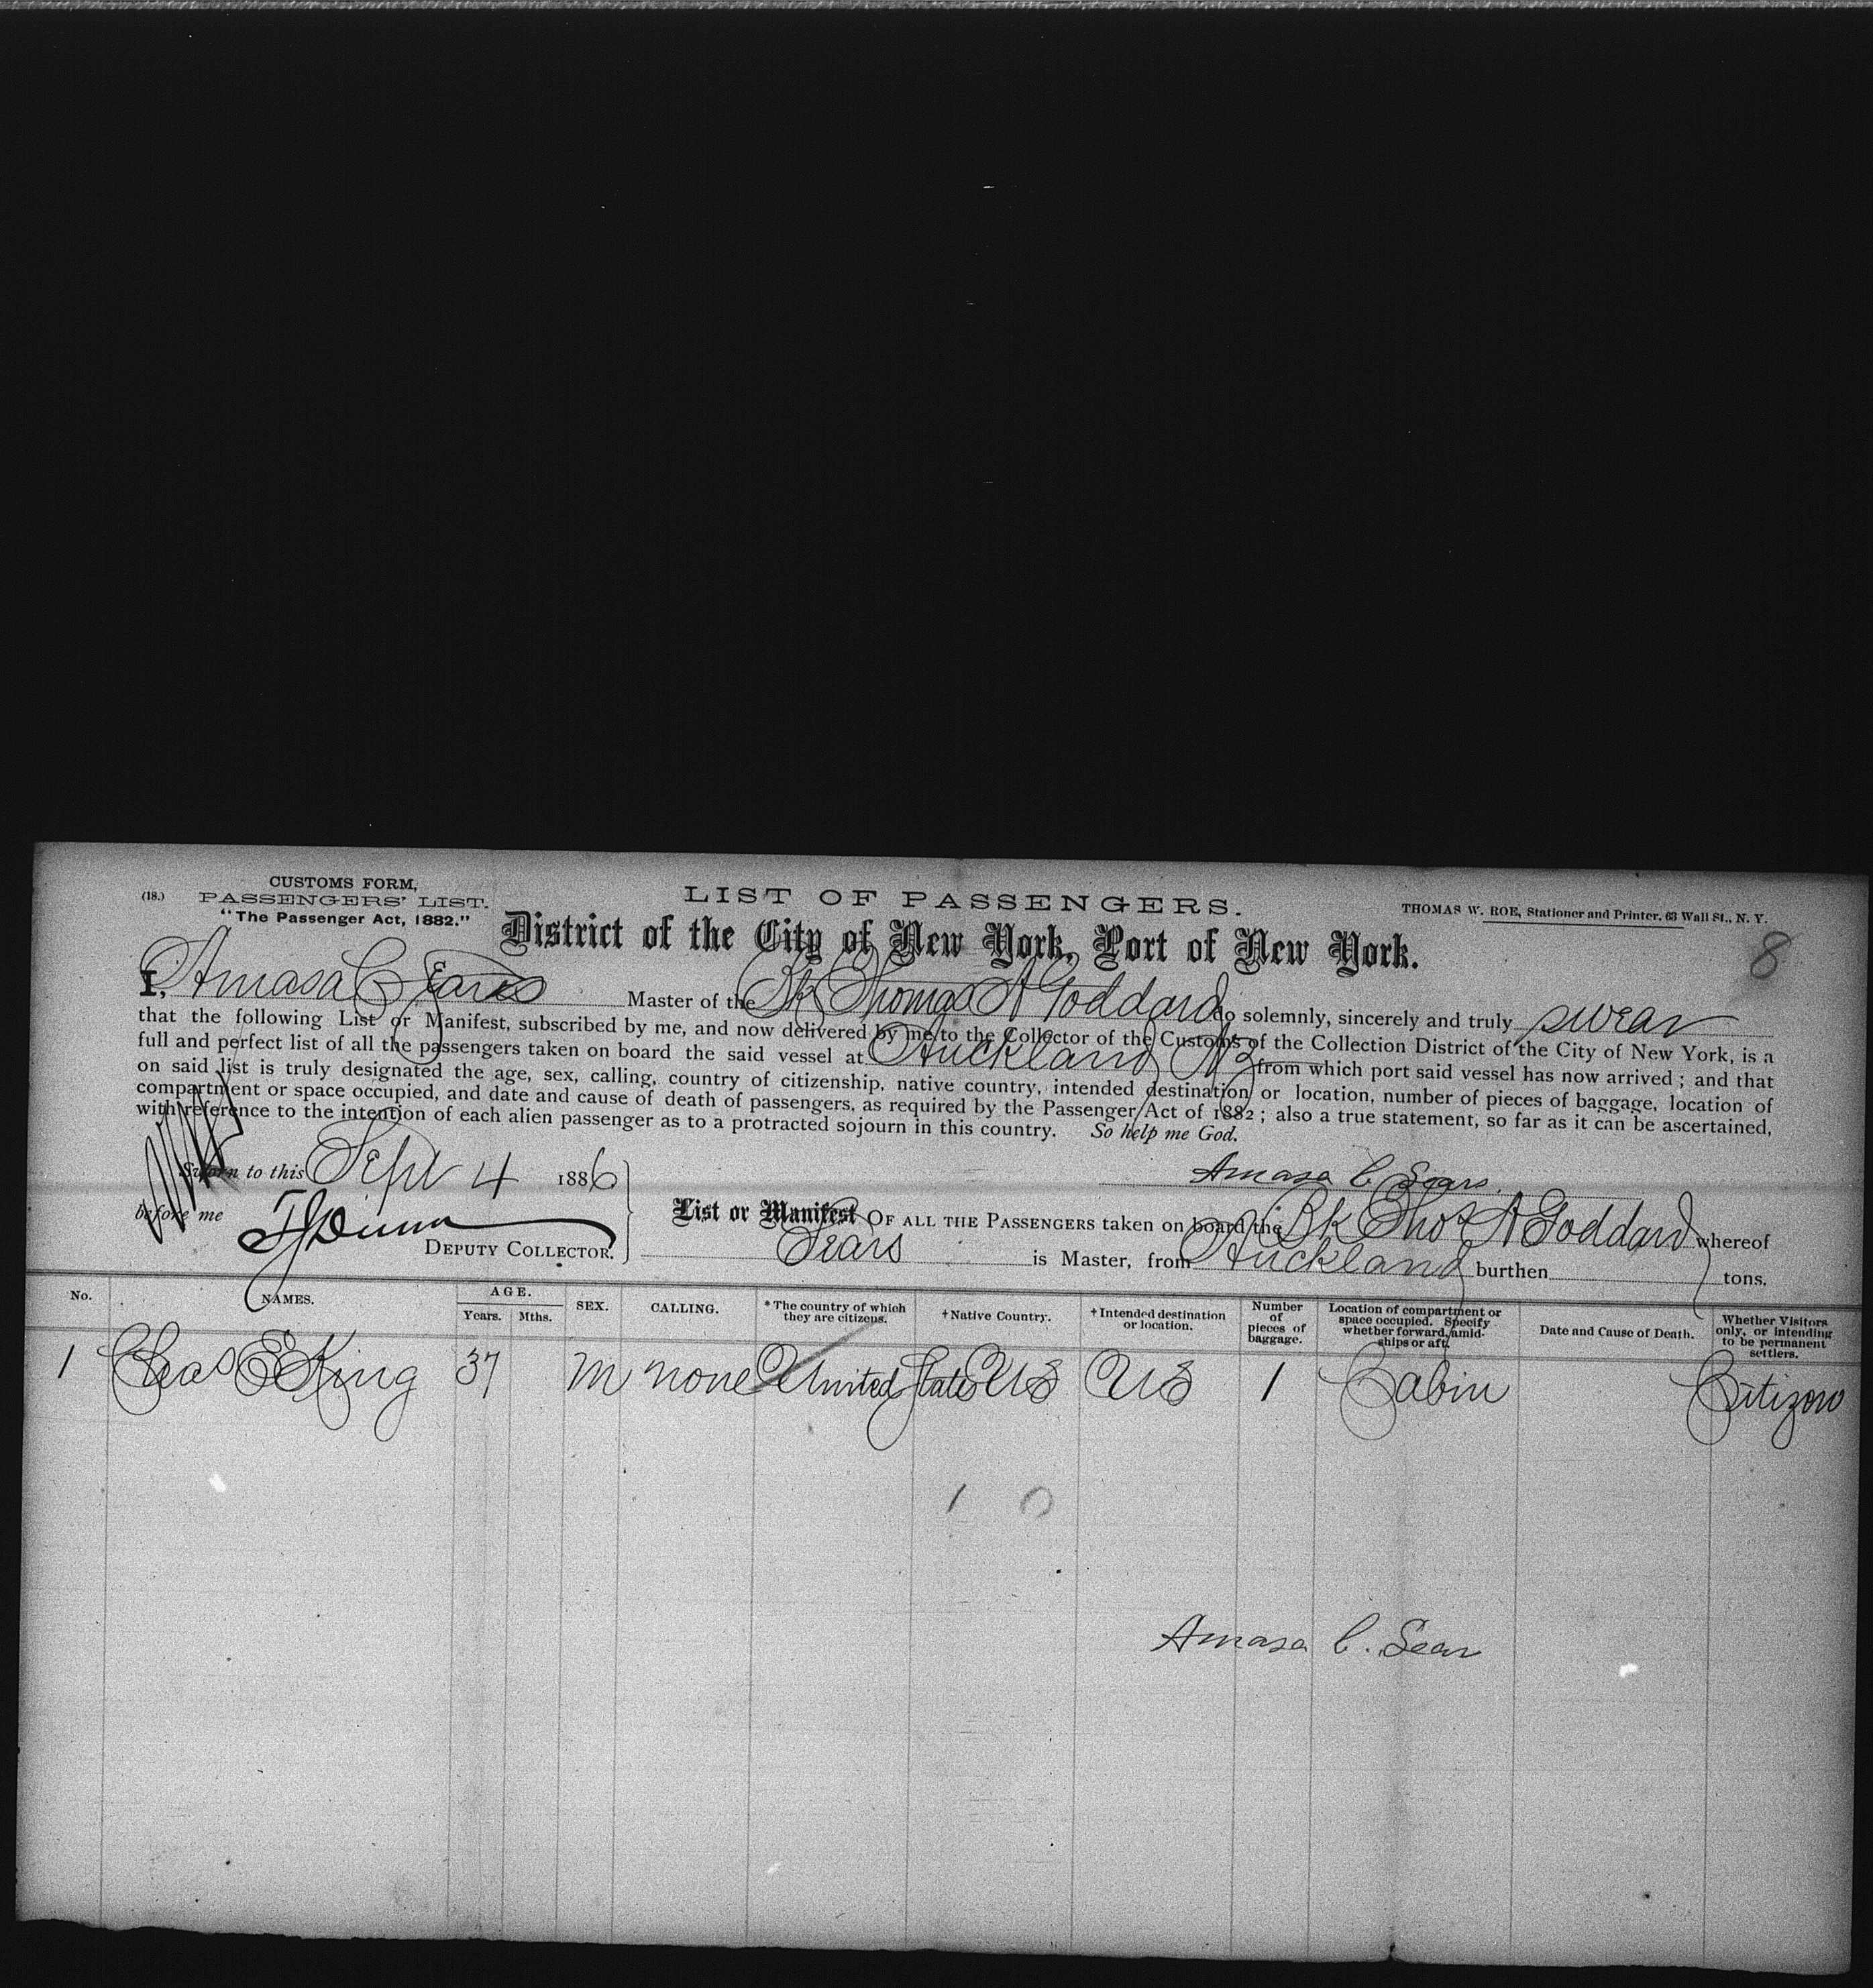 (18.)
CUSTOMS FORM,
PASSENGERS' LIST.
"The Passenger Act, 1882."
LIST OF PASSENGERS.
THOMAS W. ROE, Stationer and Printer, 63 Wall St., N. Y.
District of the City of New York, Port of New York.
8
I, Amasa C Sears Master of the Bk Thomas A Goddard do solemnly, sincerely and truly swear
that the following List or Manifest, subscribed by me, and now delivered by me to the Collector of the Customs of the Collection District of the City of New York, is a
full and perfect list of all the passengers taken on board the said vessel at Auckland NZ from which port said vessel has now arrived; and that
on said list is truly designated the age, sex, calling, country of citizenship, native country, intended destination or location, number of pieces of baggage, location of
compartment or space occupied, and date and cause of death of passengers, as required by the Passenger Act of 1882; also a true statement, so far as it can be ascertained,
with reference to the intention of each alien passenger as to a protracted sojourn in this country. So help me God.
Sworn to this Sept 4 1886
Amasa C. Sears.
before me
DEPUTY COLLECTOR.
List or Manifest OF ALL THE PASSENGERS taken on board the Bk Thos A Goddard whereof
Sears is Master, from Auckland burthen tons.
No. NAMES. AGE. Years. Mths. SEX. CALLING. *The country of which they are citizens. †Native Country. †Intended destination or location. Number of pieces of baggage. Location of compartment or space occupied. Specify whether forward, amidships or aft. Date and Cause of Death. Whether Visitors only, or intending to be permanent settlers.
1 Chas E King 37 M none United States US US 1 Cabin Citizen
1 0
Amasa C. Sears